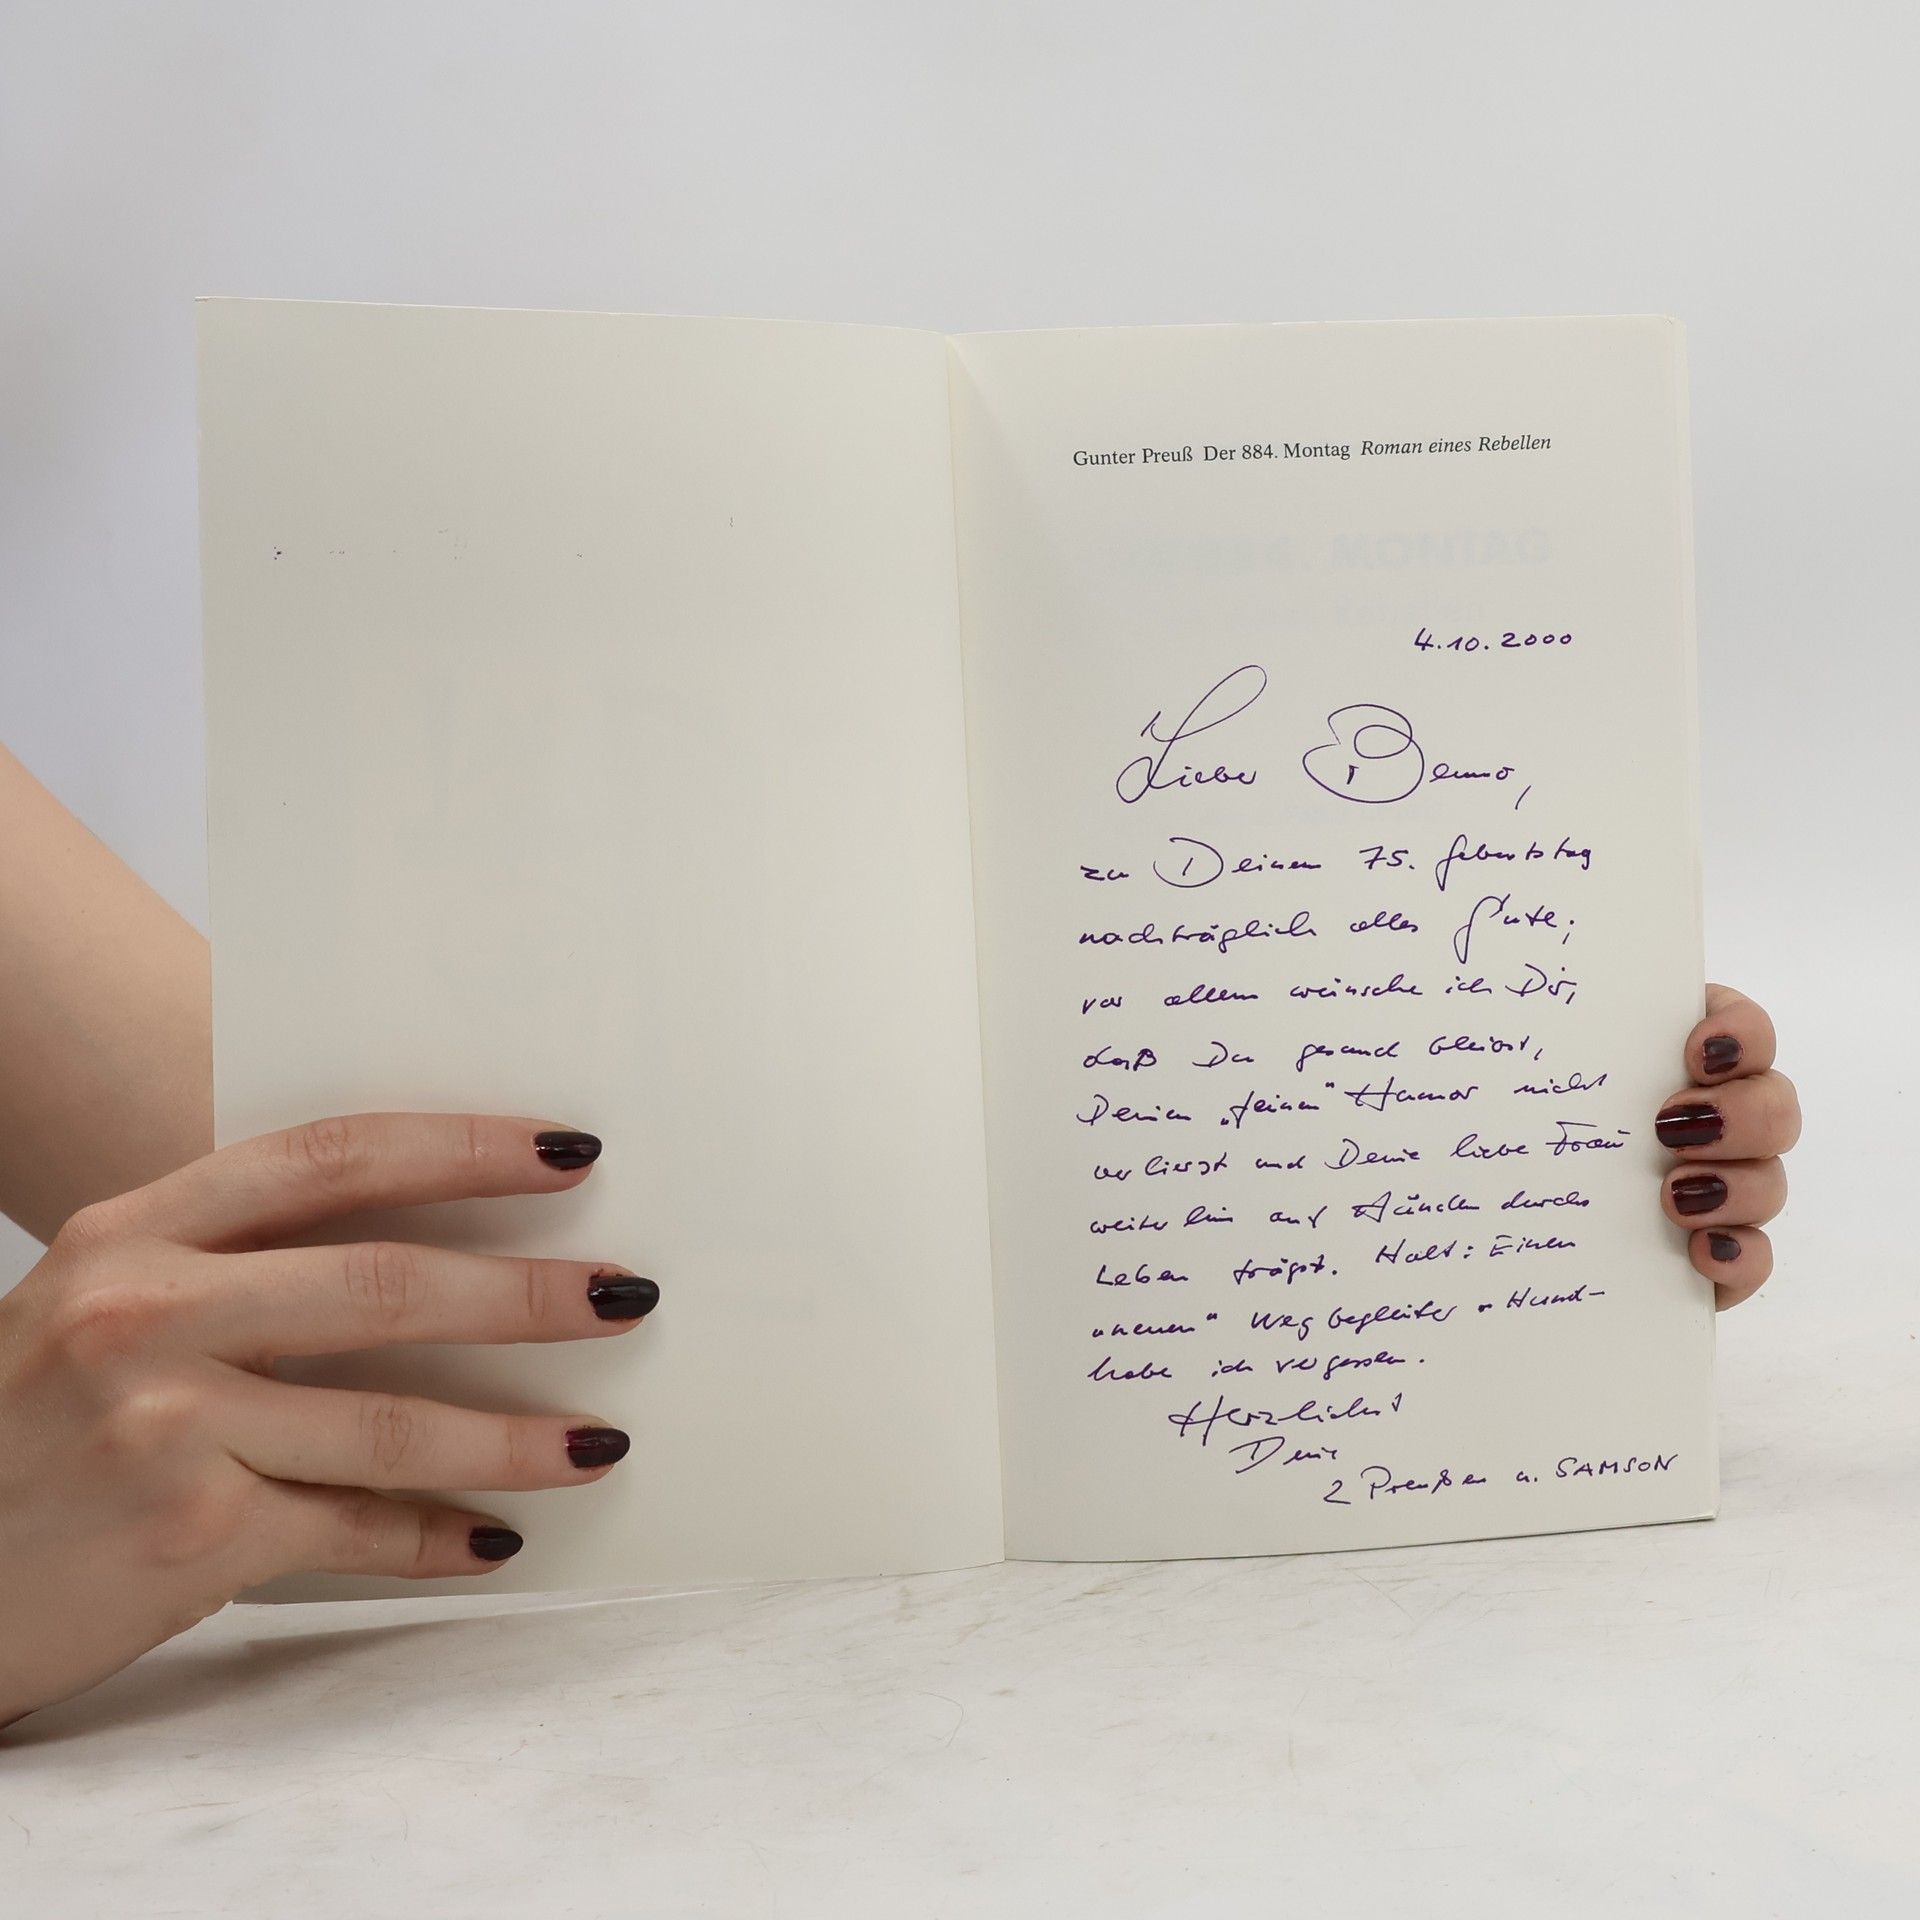 Gunter Preuß Der 884. Montag Roman eines Rebellen
4.10.2000
Lieber Benno,
zu Deinem 75. Geburtstag
nachträglich alles Gute;
vor allem wünsche ich Dir,
daß Du gesund bleibst,
Deinen „feinen" Humor nicht
verlierst und Deine liebe Frau
weiterhin auf Händen durchs
Leben trägst. Halt: Einen
„neuen" Wegbegleiter - Hund -
habe ich vergessen.
Herzlichst
Deine
2 Preußen u. SAMSON